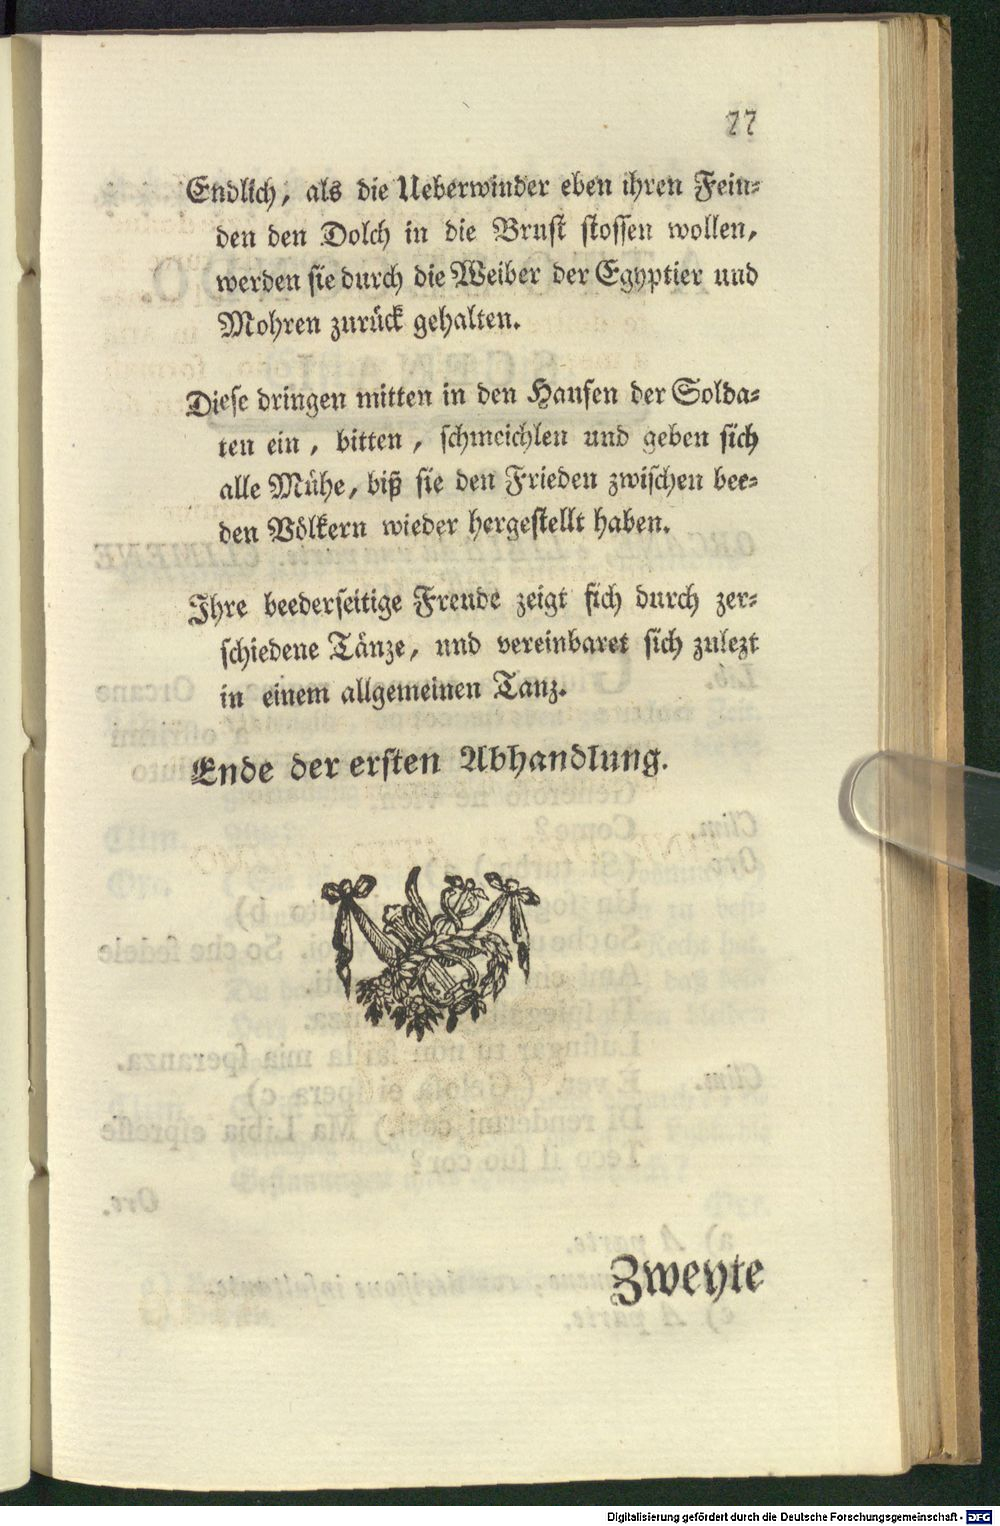 77
Endlich, als die Ueberwinder eben ihren Fein=
den den Dolch in die Brust stossen wollen,
werden sie durch die Weiber der Egyptier und
Mohren zurück gehalten.
Diese dringen mitten in den Haufen der Solda=
ten ein, bitten, schmeichlen und geben sich
alle Mühe, biß sie den Frieden zwischen bee=
den Völkern wieder hergestellt haben.
Ihre beederseitige Freude zeigt sich durch zer=
schiedene Tänze, und vereinbaret sich zulezt
in einem allgemeinen Tanz.
Ende der ersten Abhandlung.
Zweyte
Digitalisierung gefördert durch die Deutsche Forschungsgemeinschaft - DFG